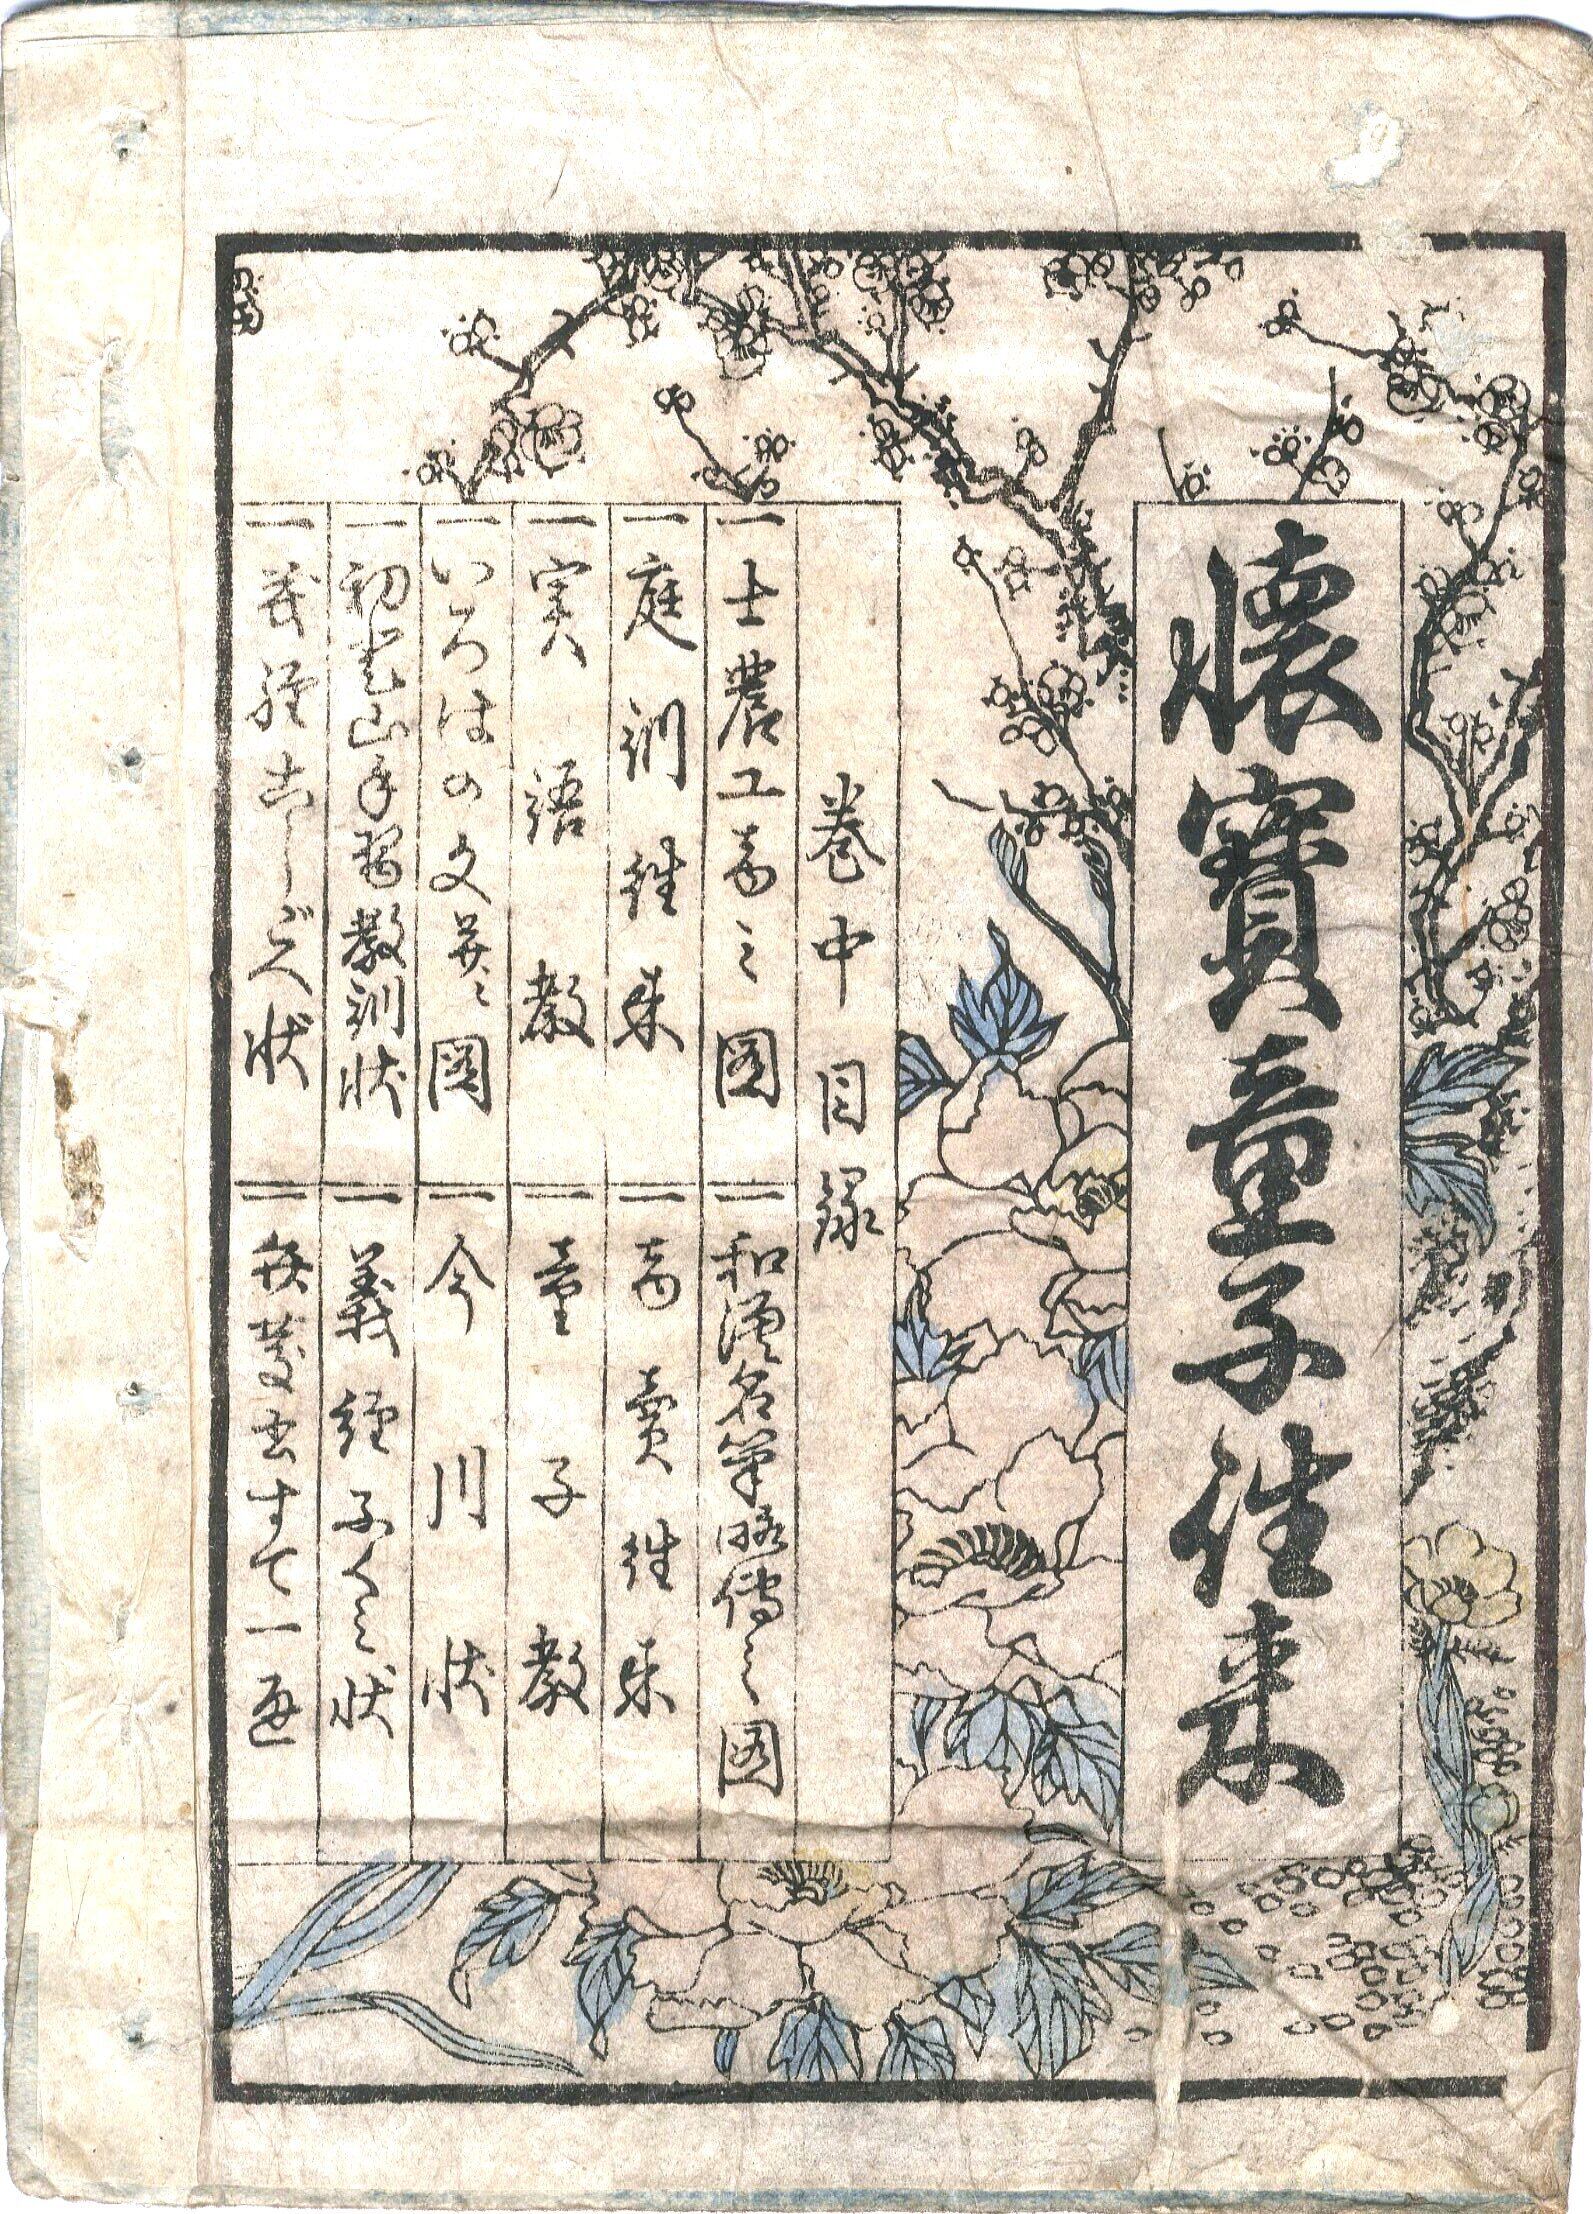 懐寶童子往来
巻中目録
一士農工商之図
一和漢名筆略傳之図
一庭訓往来
一商賣往来
一実語教
一童子教
一いろはの文并ニ図
一今川状
一初登山手習教訓状
一義経ふくミ状
一義経こしごへ状
一弁慶書すて一通